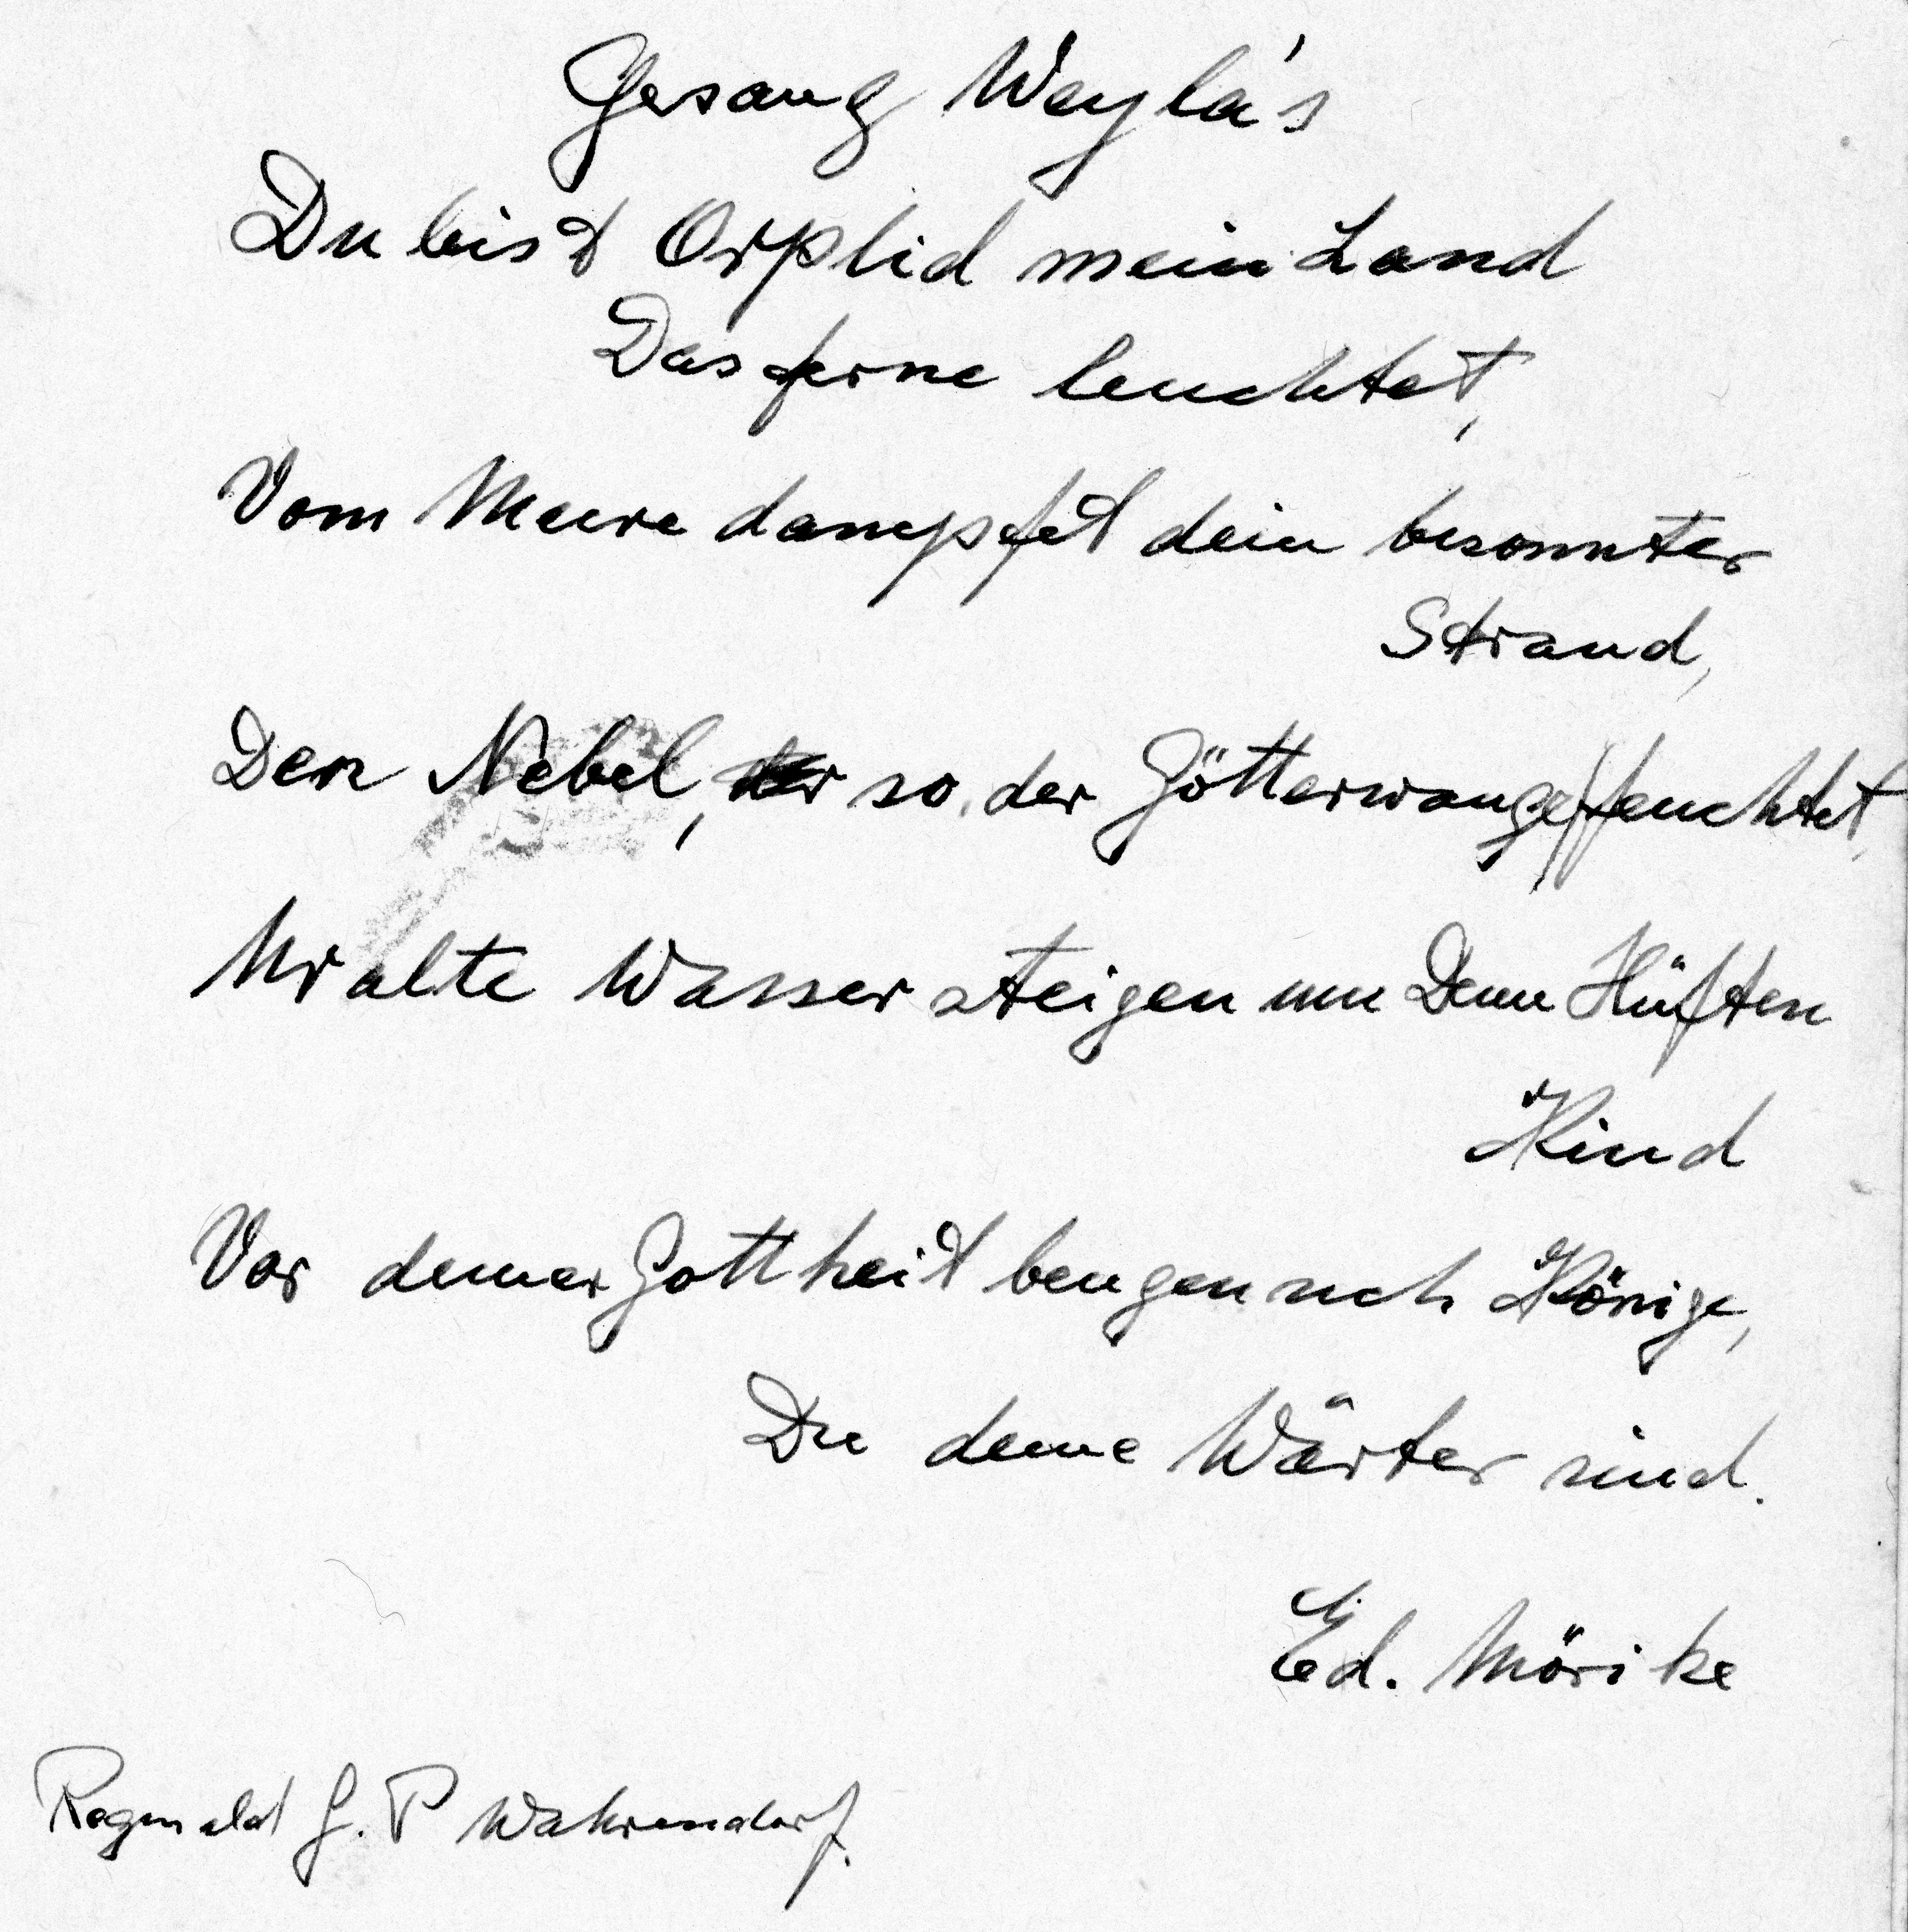 Gesang Weyla's
Du bist Orplid mein Land
Das ferne leuchtet,
Vom Meere dampfet dein besonnter
Strand,
Den Nebel, so der Götter wange feuchtet,
Uralte Wasser steigen um Deine Hüften
Kind
Vor deiner Gottheit beugen sich Könige,
Die deine Wärter sind.
Ed. Mörike
Reginald G. P Wahrendorf.